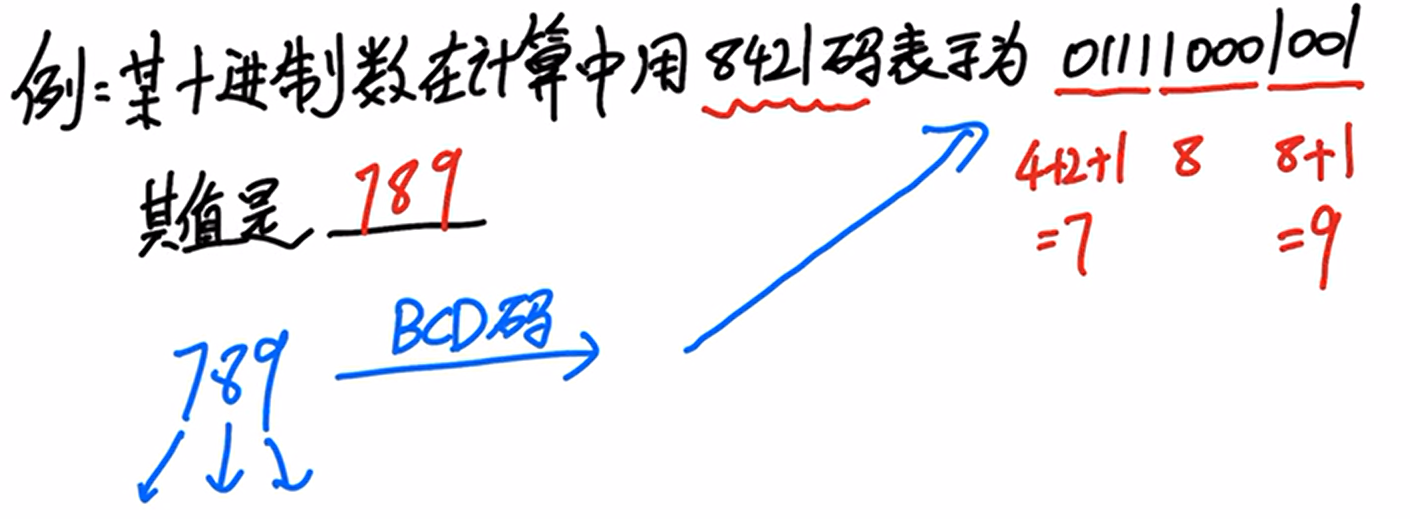 例：某十进制数在计算中用8421码表示为 011110001001
4+2+1 8 8+1
其值是 789
=7 =9
BCD码
789